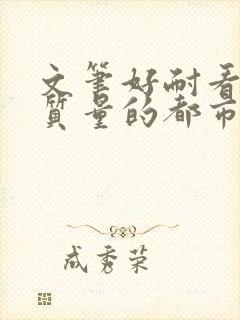 文笔好耐看
质量的都市
成秀荣